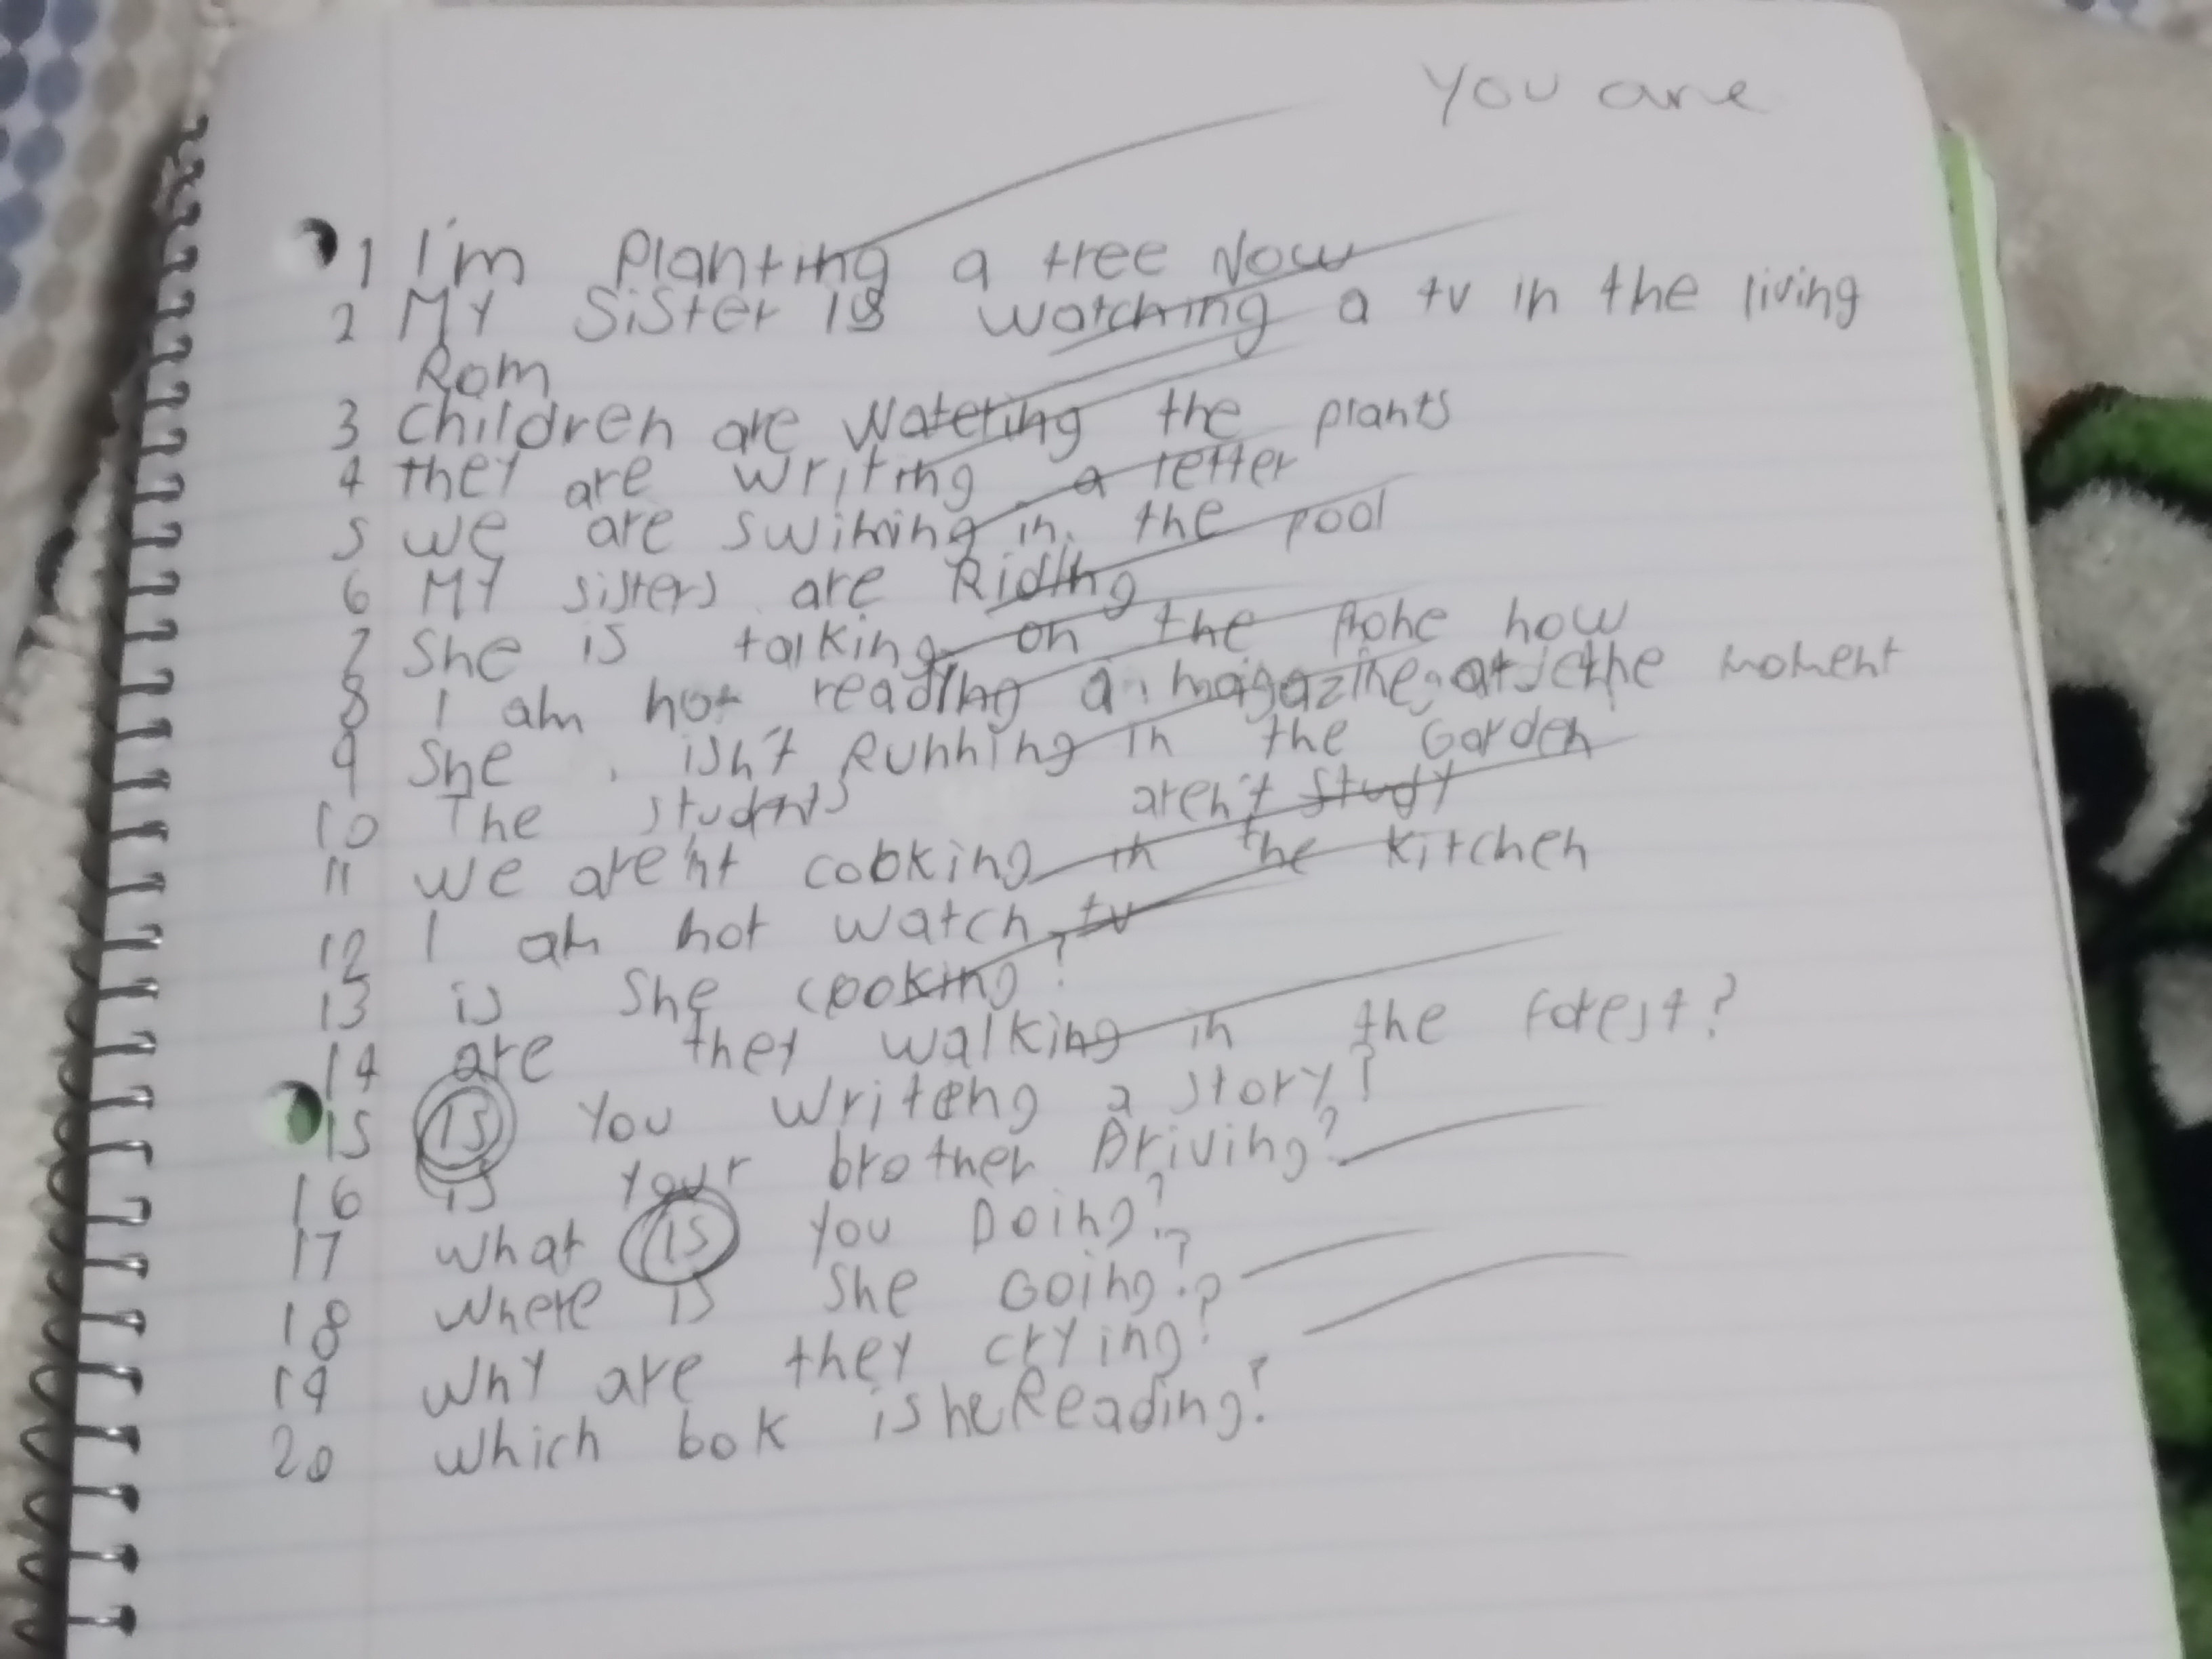 You are
1 I'm Planting a tree Now
2 MY Sister is watching a tv in the living
Rom
3 children are Watering the plants
4 they are writing a letter
5 we are swiming in the pool
6 MY sisters are Riding
7 She is talking on the Phone now
8 I am not reading a magazine at the moment
9 She isn't Running in the Garden
10 The studnts aren't study
11 we are'nt cooking in the kitchen
12 I am not watch tv
13 is She cooking?
14 are they walking in the forest?
15 is You writeng a story?
16 is your brother Driving?
17 what is you Doing?
18 Where is she Going?
19 Why are they crying?
20 which bok is he Reading?